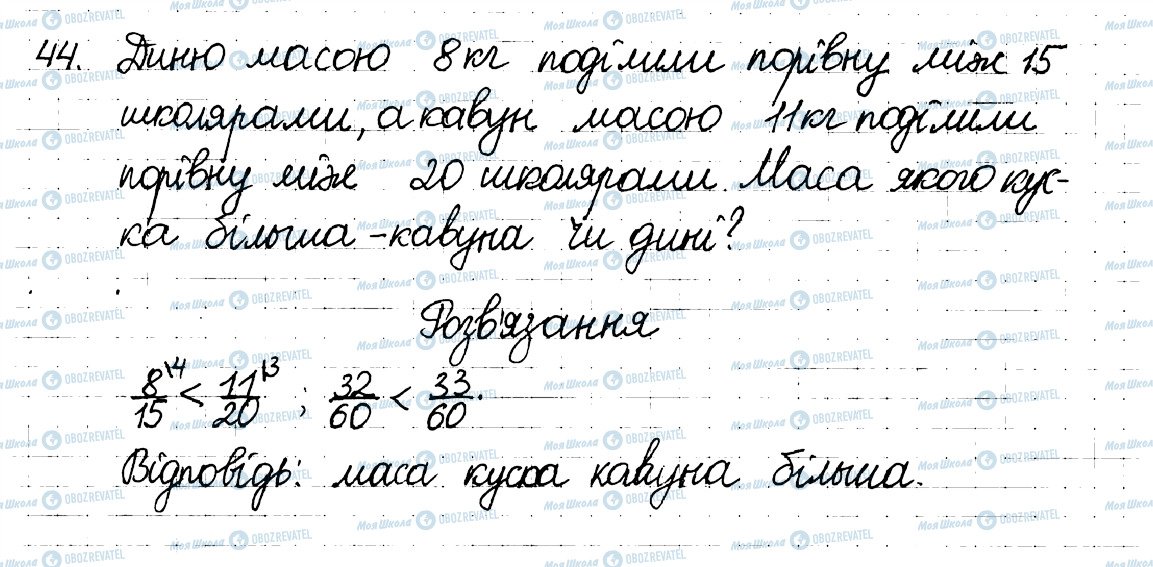 44. Диню масою 8 кг поділили порівну між 15
школярами, а кавун масою 11 кг поділили
порівну між 20 школярами. Маса якого кус-
ка більша - кавуна чи дині?
Розв'язання
8/15 \4 < 11/20 \3 ; 32/60 < 33/60.
Відповідь: маса куска кавуна більша.
МояШкола OBOZREVATEL